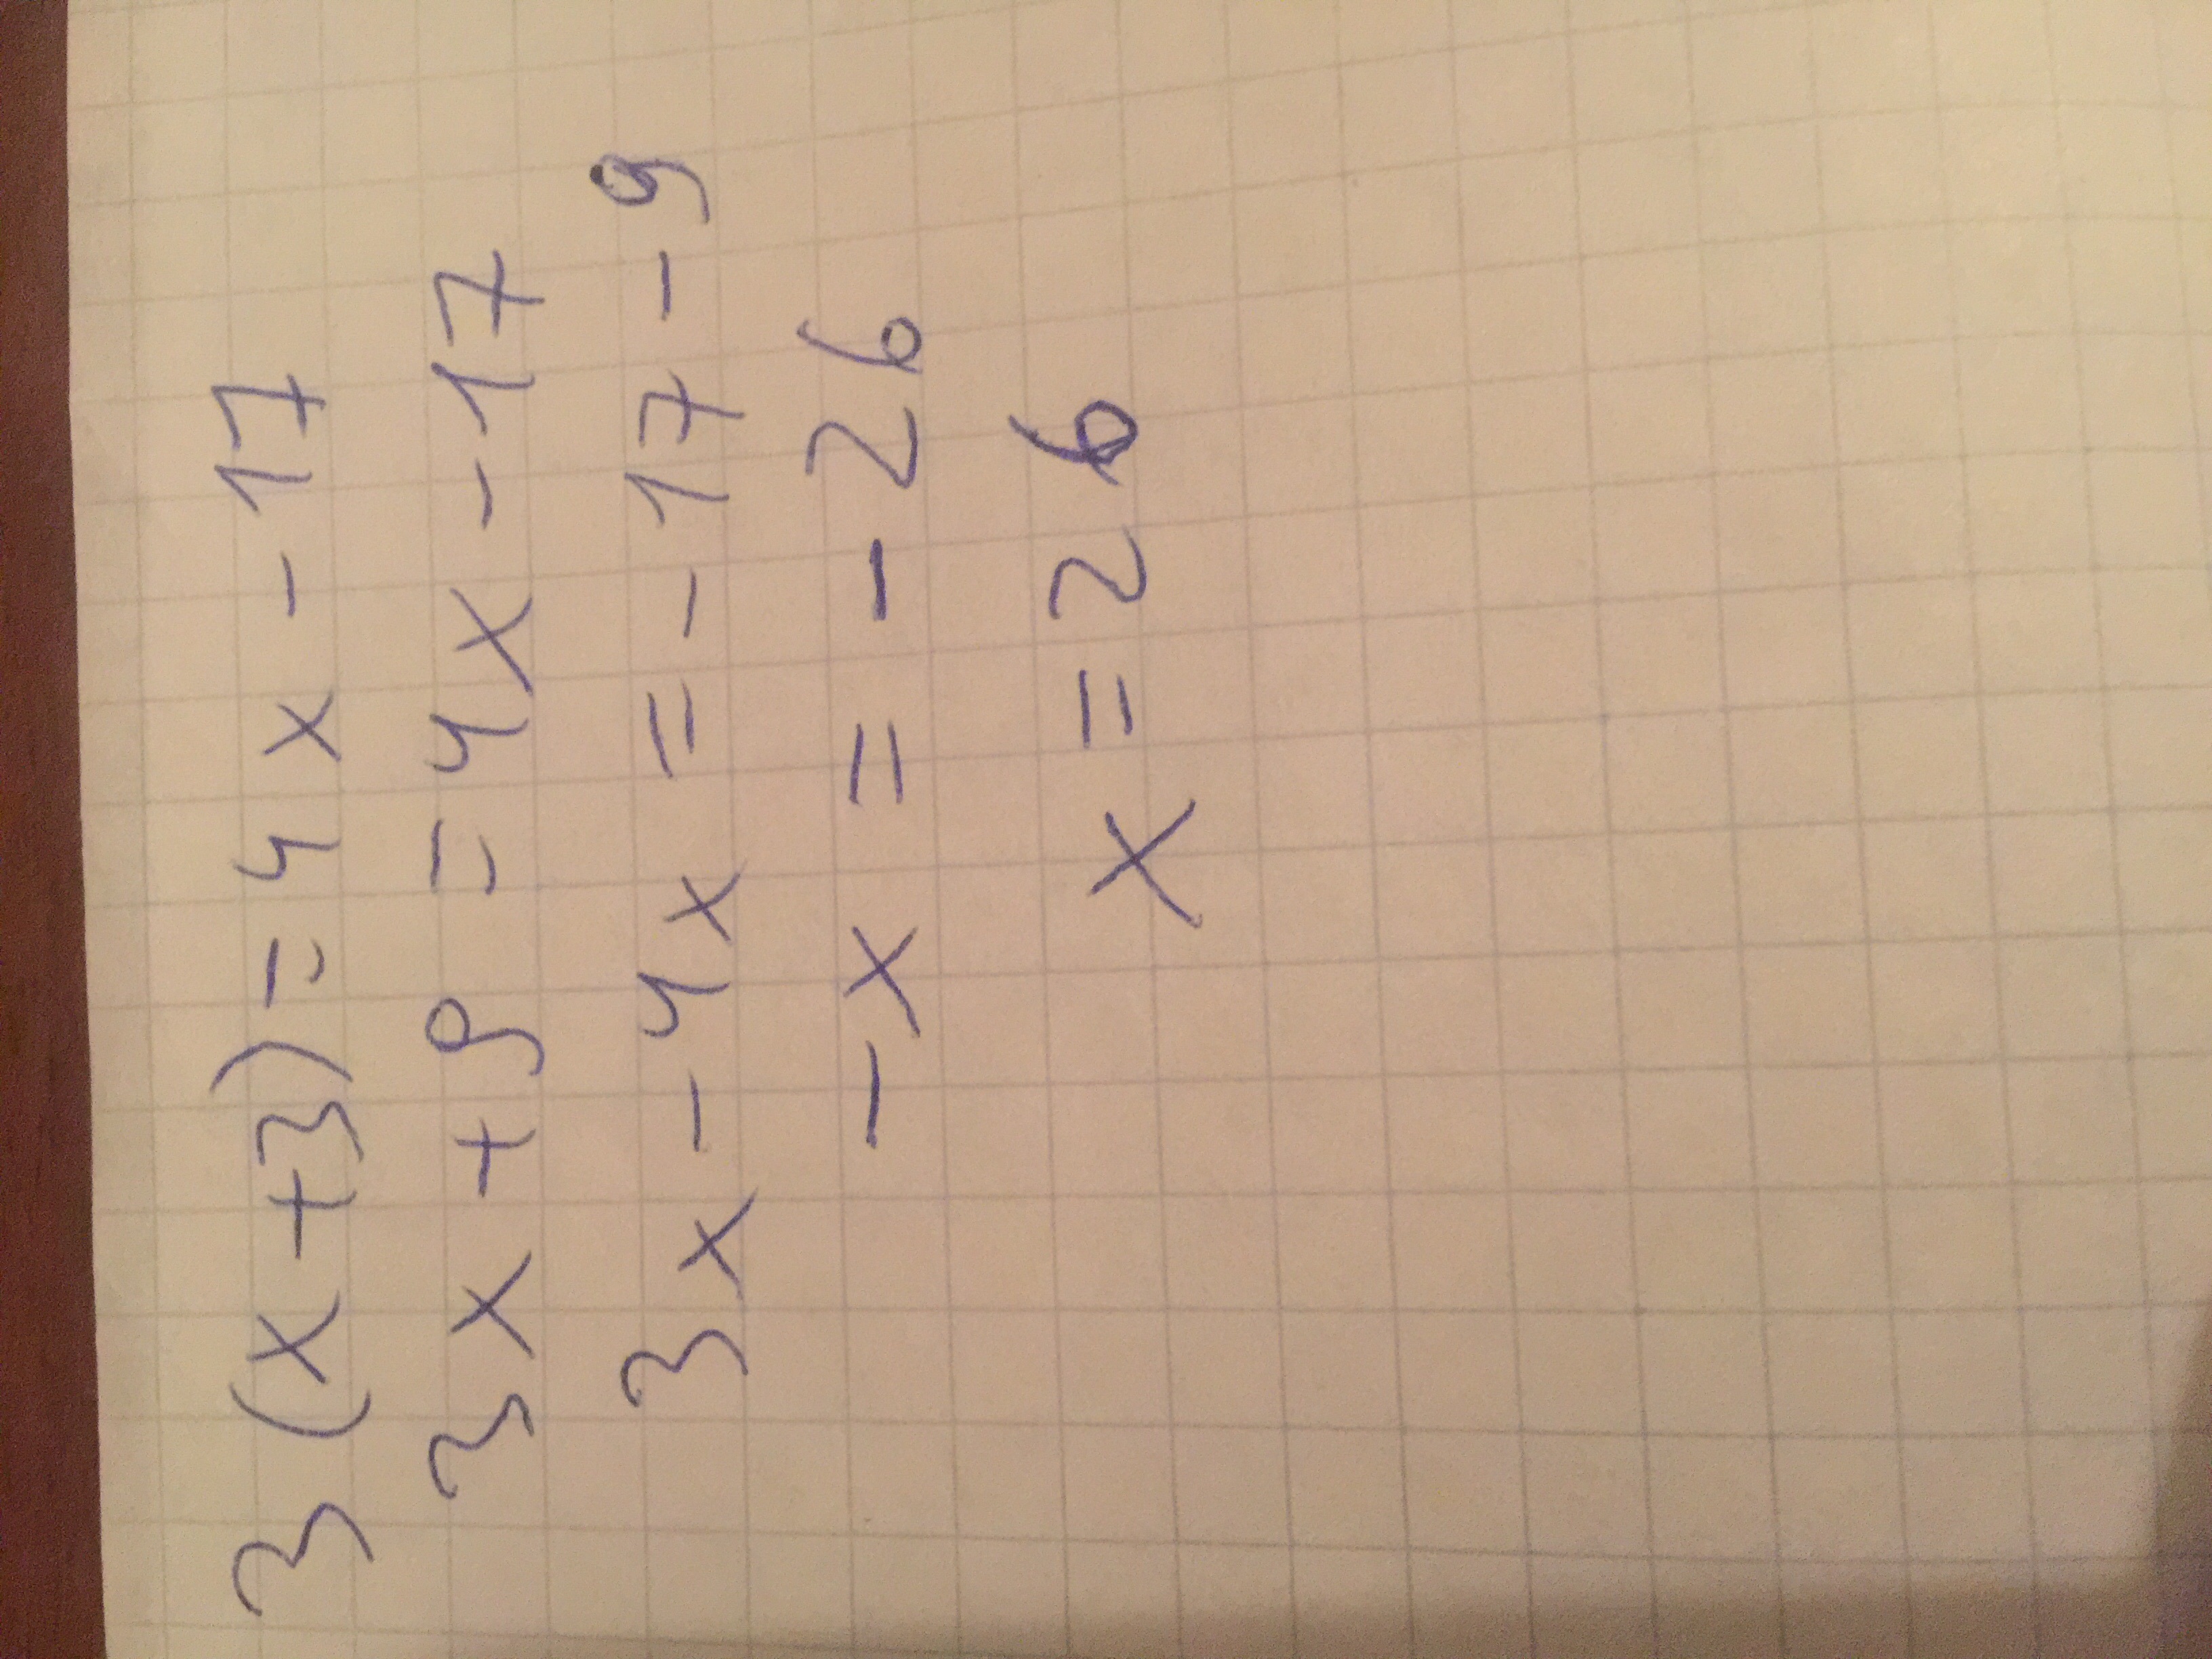 3(x+3)=4x-17
3x+9=4x-17
3x-4x=-17-9
-x=-26
x=26